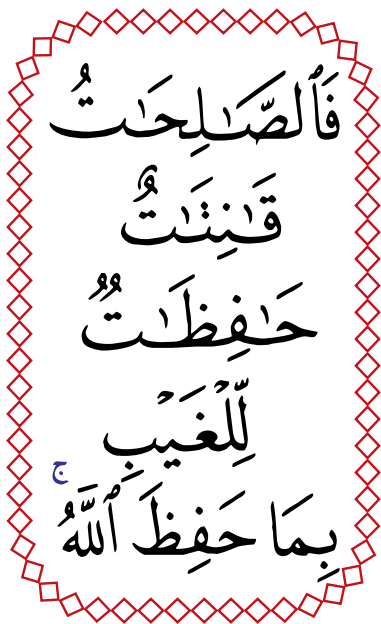 فَٱلصَّـٰلِحَـٰتُ
قَـٰنِتَـٰتٌ
حَـٰفِظَـٰتٌۭ
لِّلْغَيْبِ
بِمَا حَفِظَ ٱللَّهُ ۚ